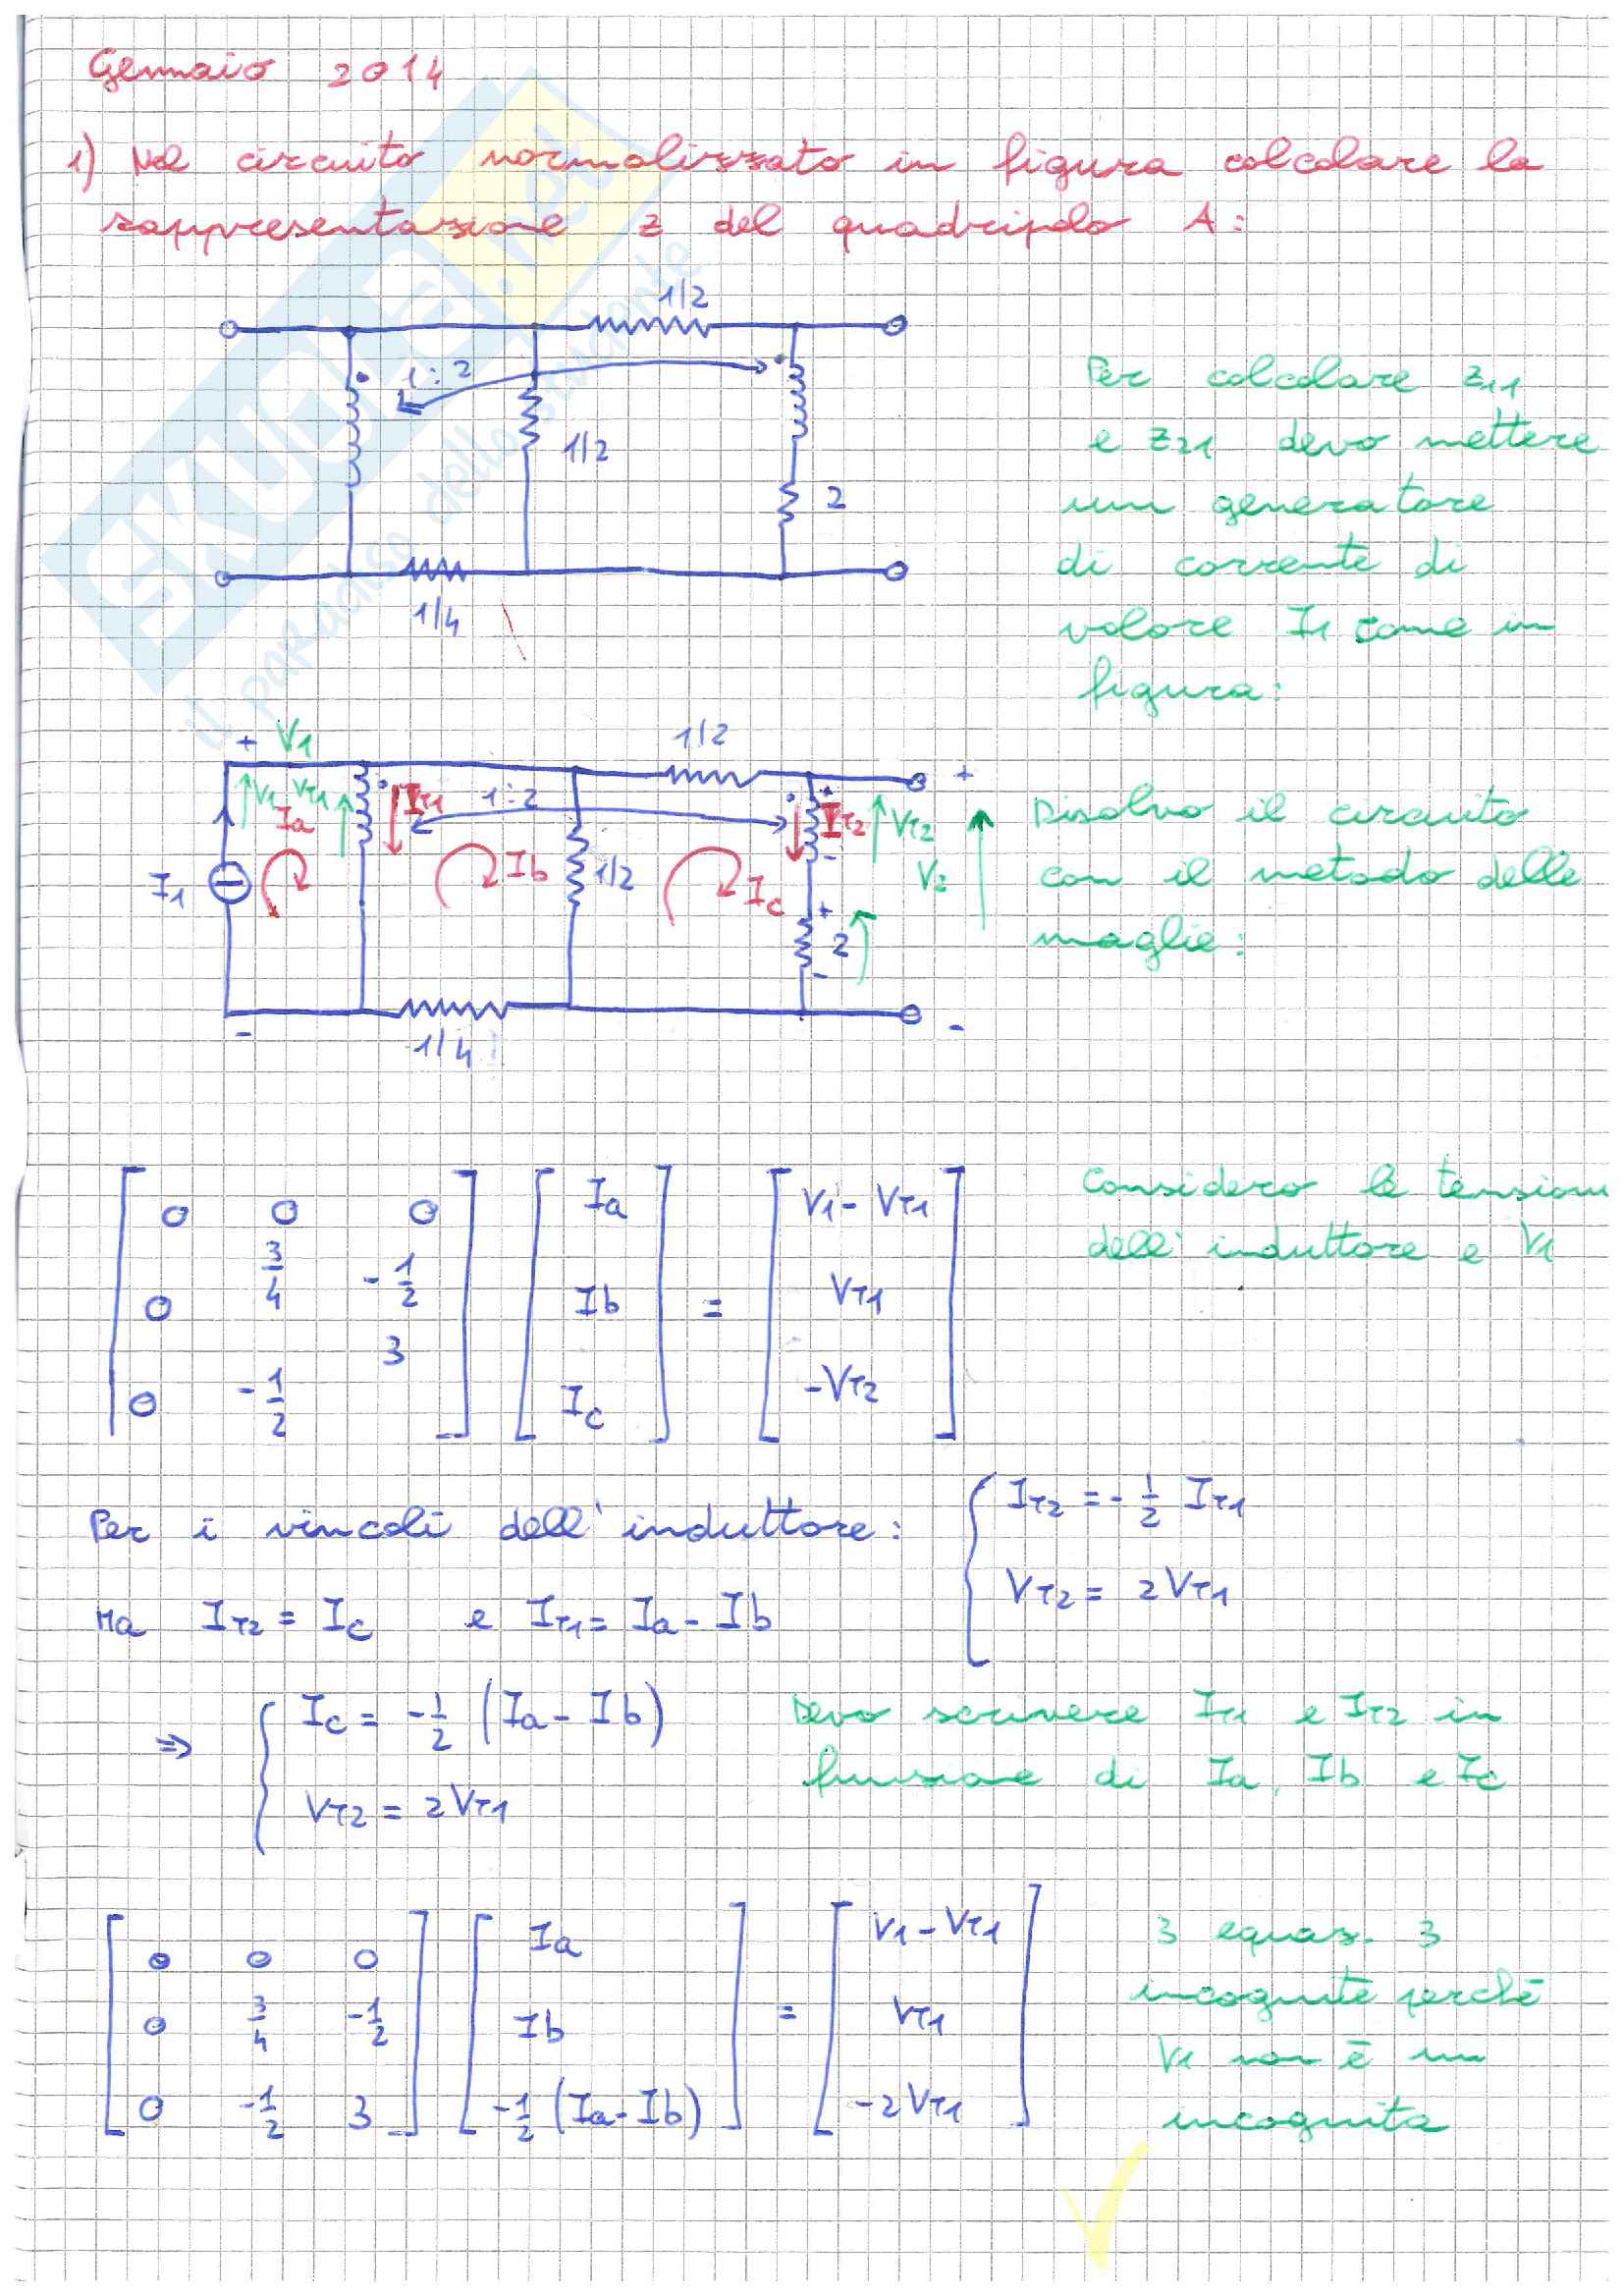 Gennaio 2014
1) Nel circuito normalizzato in figura calcolare la
rappresentazione z del quadripolo A:
1/2
1:2
1/2
2
1/4
Per calcolare z11
e z21 devo mettere
un generatore
di corrente di
valore I1 come in
figura:
SKUOLA.net
il paradiso dello studente
+ V1
1/2
+
V1 VT1 IT1 1:2 + IT2 VT2
Ia
I1 Ib 1/2 Ic - V2
+
2
-
- -
1/4
Risolvo il circuito
con il metodo delle
maglie:
[0 0 0] [Ia] [V1 - VT1]
[0 3/4 -1/2] [Ib] = [VT1]
[0 -1/2 3] [Ic] [-VT2]
Considero le tensioni
dell'induttore e V1
Per i vincoli dell'induttore: { IT2 = - 1/2 IT1
VT2 = 2VT1
Ma IT2 = Ic e IT1 = Ia - Ib
⇒ { Ic = -1/2 (Ia - Ib)
VT2 = 2VT1
Devo scrivere IT1 e IT2 in
funzione di Ia, Ib e Ic
[0 0 0] [Ia] [V1 - VT1]
[0 3/4 -1/2] [Ib] = [VT1]
[0 -1/2 3] [-1/2 (Ia - Ib)] [-2VT1]
3 equaz. 3
incognite perchè
V1 non è un
incognita